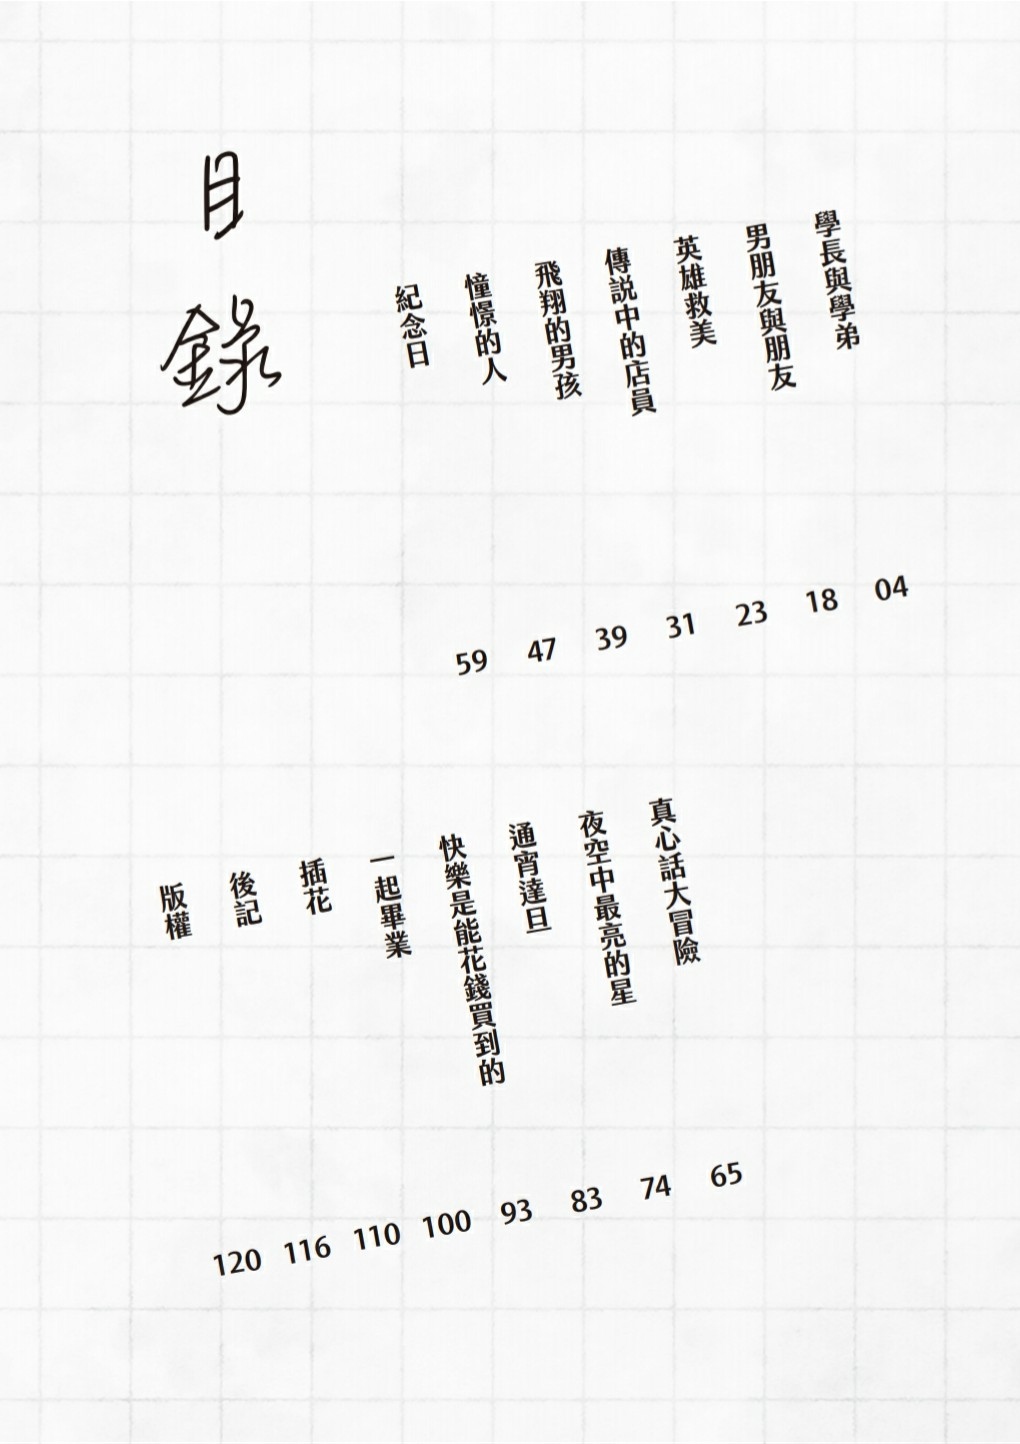 目錄
學長與學弟
04
男朋友與朋友
18
英雄救美
23
傳説中的店員
31
飛翔的男孩
39
憧憬的人
47
紀念日
59
真心話大冒險
65
夜空中最亮的星
74
通宵達旦
83
快樂是能花錢買到的
93
一起畢業
100
插花
110
後記
116
版權
120